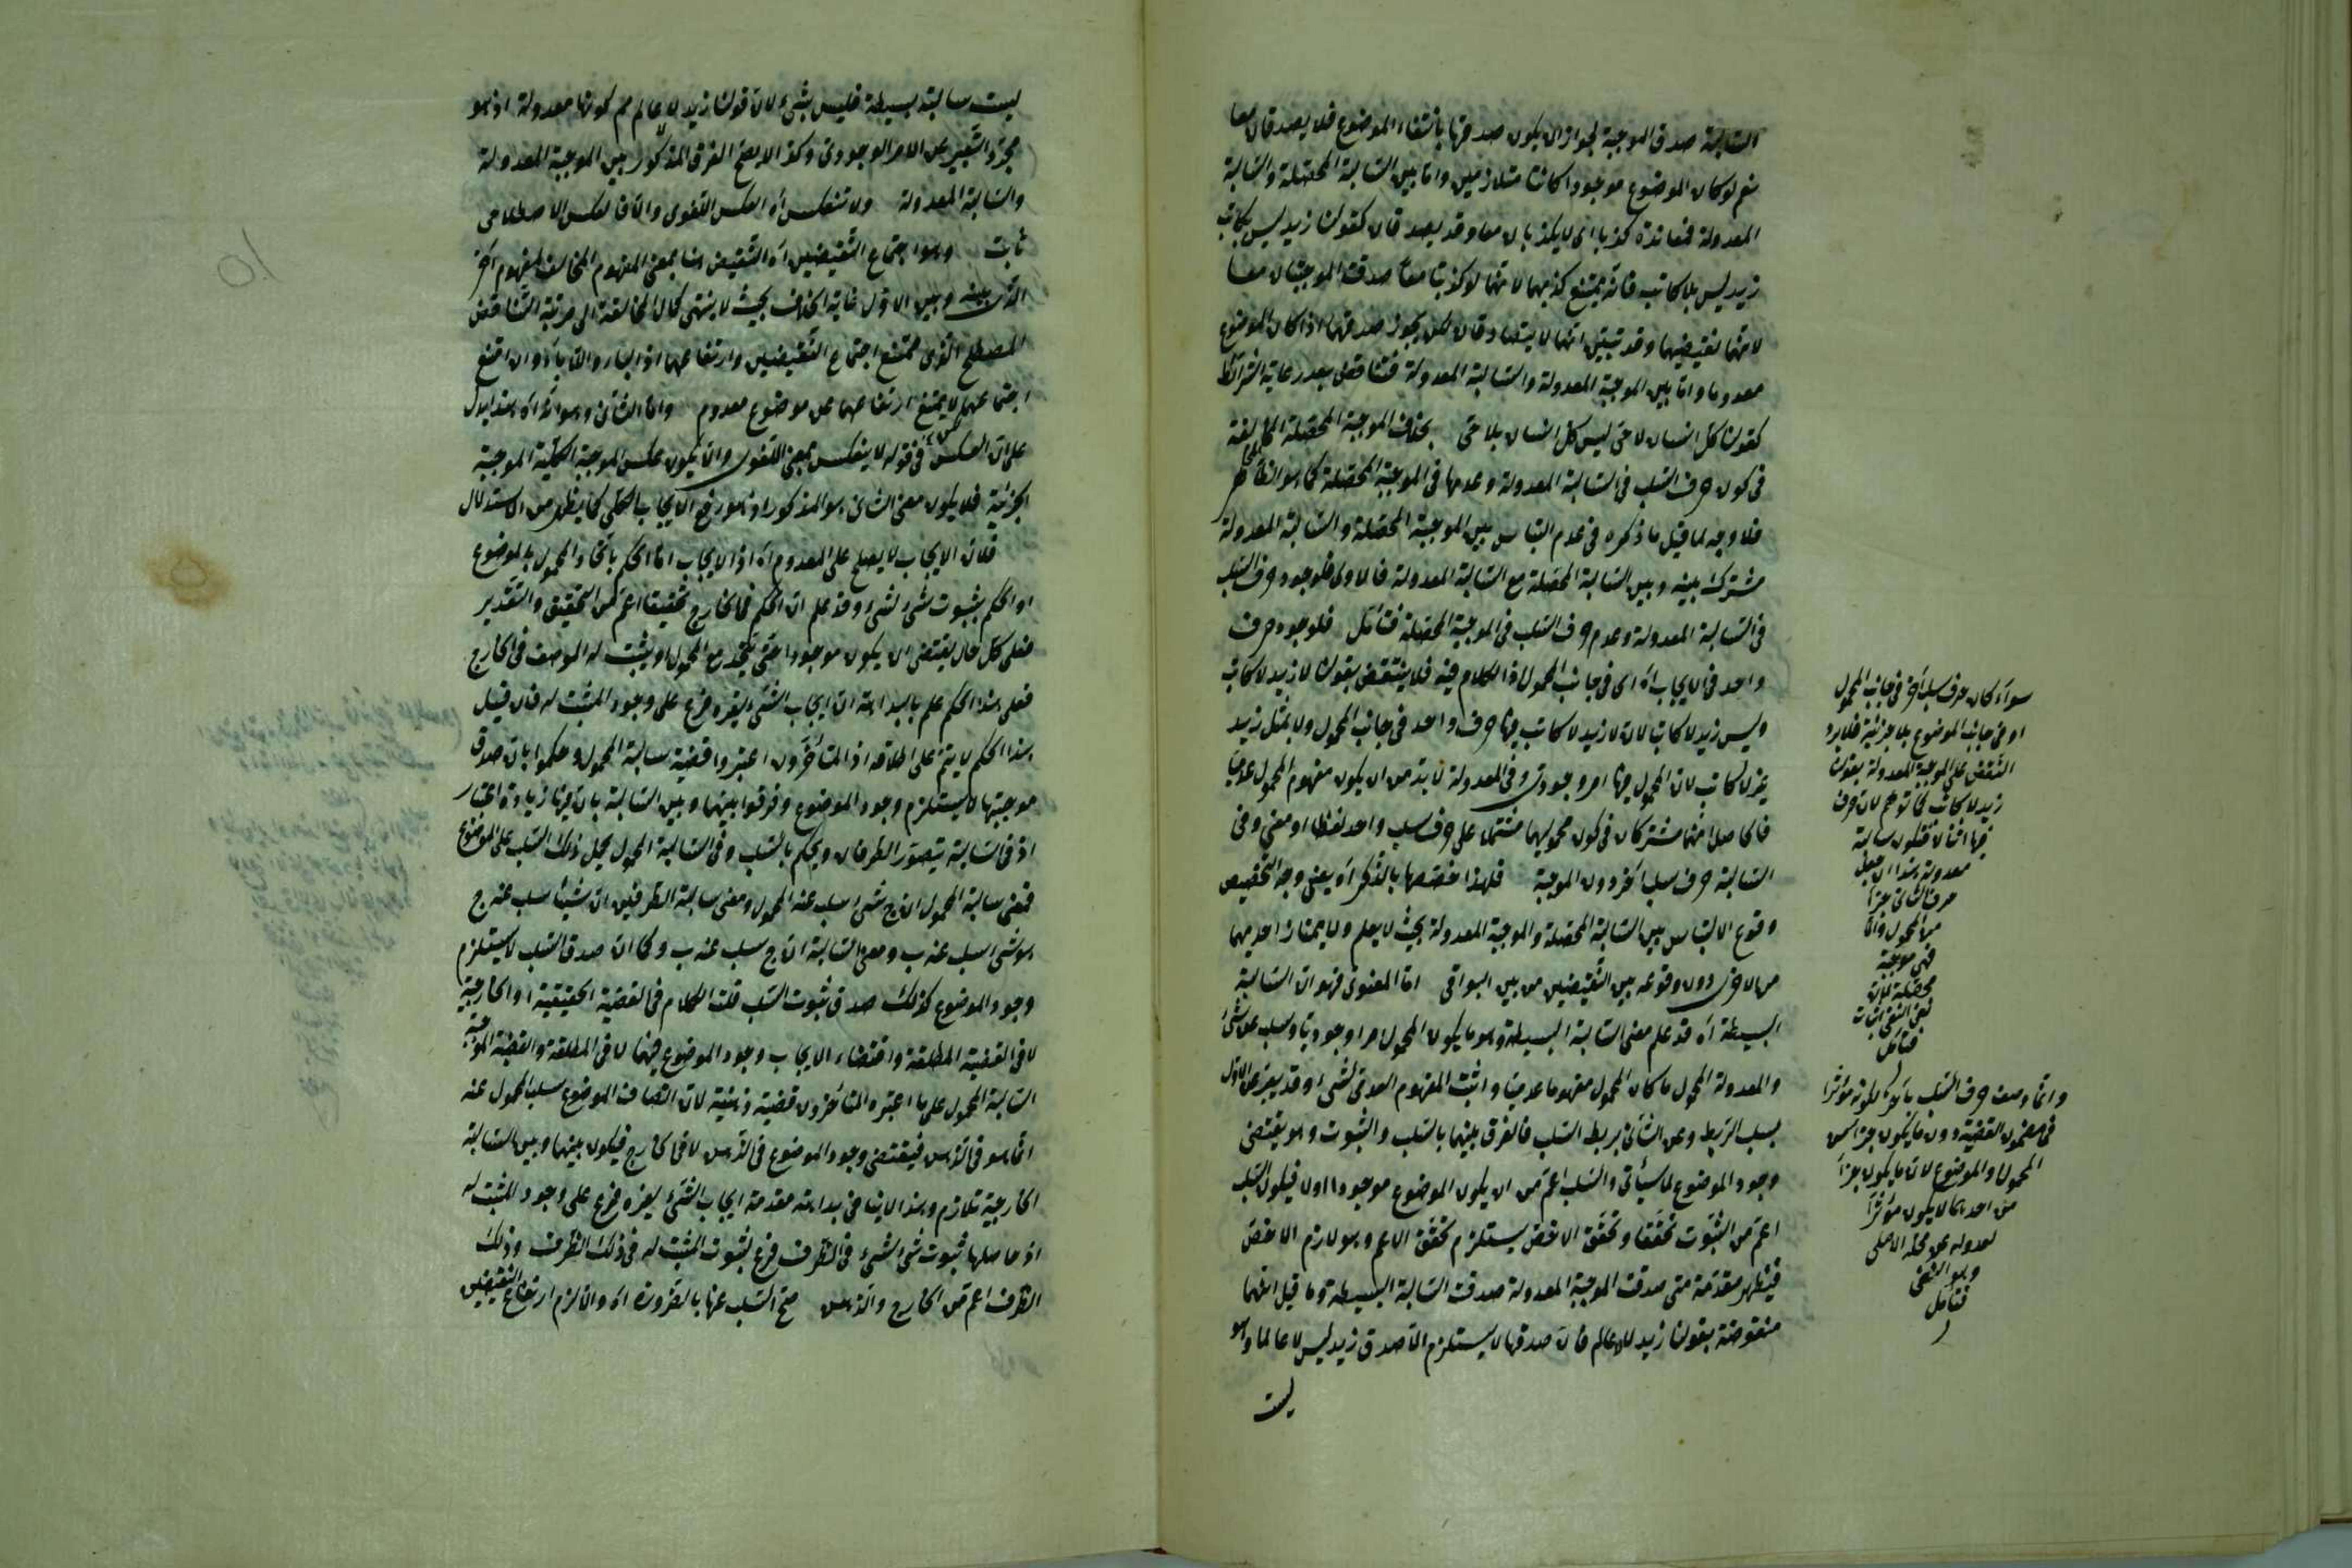 السالبة صدق الموجبة لجواز ان يكون صدقها بانتفاء الموضوع فلا يصدقان معا
نعم لو كان الموضوع موجودا كانتا متلازمين واما بين السالبة المحصلة والسالبة
المعدولة فمعاندة كذبا اى لا يكذبان معا وقد يصدقان كقولنا زيد ليس بكاتب
زيد ليس بلا كاتب فانه يمتنع كذبهما لانهما لو كذبتا معا صدقت الموجبتان معا
لانهما نقيضيهما وقد تبين انهما لا يتصادقان لكن يجوز صدقهما اذا كان الموضوع
معدوما واما بين الموجبة المعدولة والسالبة المعدولة فتناقض بعد رعاية الشرائط
كقولنا كل انسان لا حى ليس كل انسان بلا حى بخلاف الموجبة المحصلة المخالفة
فى كون حرف السلب فى السالبة المعدولة وعدمها فى الموجبة المحصلة كما هو الظاهر
فلا وجه لما قيل ما ذكره فى عدم التباس بين الموجبة المحصلة والسالبة المعدولة
مشترك بينه وبين السالبة المحصلة مع السالبة المعدولة فالاولى فلوجود حرف السلب
فى السالبة المعدولة وعدم حرف السلب فى الموجبة المحصلة فتأمل فلوجود حرف
واحد فى الايجاب اه اى فى جانب المحمول اذ الكلام فيه فلا ينتقض بقولنا لا زيد لا كاتب
وليس زيد لا كاتب لان لا زيد لا كاتب فيها حرف واحد فى جانب المحمول ولا بمثل زيد
غير لا كاتب لان المحمول فيها امر وجودى وفى المعدولة لا بد من ان يكون مفهوم المحمول عدميا
فالحاصل انهما مشتركان فى كون محموليهما مشتملا على حرف سلب واحد لفظا او معنى وفى
السالبة حرف سلب آخر دون الموجبة فلهذا خصصها بالذكر اه يعنى وجه التخصيص
وقوع الالتباس بين السالبة المحصلة والموجبة المعدولة بحيث لا يعلم ولا يمتاز احديهما
من الاخرى دون وقوعه بين النقيضين من بين البواقى اما المعنوى فهو ان السالبة
البسيطة اه قد علم معنى السالبة البسيطة وهو ما يكون المحمول امرا وجوديا وسلب عن شئ
والمعدولة المحمول ما كان المحمول مفهوما عدميا واثبت المفهوم العدمى لشئ وقد يعبر عن الاول
بسلب الربط وعن الثانى بربط السلب فالفرق بينهما بالسلب والثبوت وهو يقتضى
وجود الموضوع لما سيأتى والسلب اعم من ان يكون الموضوع موجودا اولا فيكون السلب
اعم من الثبوت تحققا وتحقق الاخص يستلزم تحقق الاعم وهو لازم الاخص
فيظهر مقدمة متى صدقت الموجبة المعدولة صدقت السالبة البسيطة وما قيل انهما
منقوضة بقولنا زيد لا عالم فان صدقها لا يستلزم الا صدق زيد ليس لا عالما وهو
ليست
سواء كان حرف سلب آخر فى جانب المحمول
او فى جانب الموضوع بلا جزئية فلا يرد
النقض على الموجبة المعدولة بقولنا
زيد لا كاتب كما توهم لان حرف
فيها اثنان فتكون سالبة
معدولة هذا ان جعل
حرف الثانى جزأ
من المحمول والا
فهى موجبة
محصلة لان
نفى النفى اثبات
فتأمل
وانما وصف حرف السلب بآخر لكونه مؤثرا
فى مضمون القضية دون ما يكون جزأ من
المحمول او الموضوع لان ما يكون جزأ
من احدهما لا يكون مؤثرا
لعدوله عن محله الاصلى
وهو النفى
فتأمل
ليست سالبة بسيطة فليس بشئ لان قولنا زيد لا عالم مم كونها معدولة اذ هو
مجرد التعبير عن الامر الوجودى وكذا لا يصح الفرق المذكور بين الموجبة المعدولة
والسالبة المعدولة ولا تنعكس اه العكس اللغوى والا فالعكس الاصطلاحى
ثابت وهو اجتماع النقيضين اه النقيض هنا بمعنى المفهوم المخالف لمفهوم آخر
الذى بينه وبين الاول غاية الخلاف بحيث لا ينتهى كمال المخالفة الى مرتبة التناقض
المصطلح الذى يمتنع اجتماع النقيضين وارتفاعهما اذ البار واللابار وان امتنع
اجتماعهما لا يمتنع ارتفاعهما عن موضوع معدوم واما الثانى وهو انه اه هذا يدل
على ان العكس فى قوله لا ينعكس بمعنى اللغوى وان يكون عكس الموجبة الكلية الموجبة
الجزئية فلا يكون معنى الثانى هو المذكور اذ هو رفع الايجاب الكلى كما يظهر من الاستدلال
فلان الايجاب لا يصح على المعدوم اه اذ الايجاب اما الحكم باتحاد المحمول بالموضوع
او الحكم بثبوت شئ لشئ وقد علم ان الحكم فى الخارج تحقيقا اعم من التحقيق والتقدير
فعلى كل حال يقتضى ان يكون موجودا حتى يتحد مع المحمول او يثبت له الموصف فى الخارج
فعلى هذا الحكم علم بالبداهة ان ايجاب الشئ لغيره فرع على وجود المثبت له فان قيل
هذا الحكم لا يتم على اطلاقه اذ المتأخرون اعتبروا قضية سالبة المحمول وحكموا بان صدق
موجبتها لا يستلزم وجود الموضوع وفرقوا بينهما وبين السالبة بان فيها زيادة اعتبار
اذ فى السالبة يتصور الطرفان ويحكم بالسلب وفى السالبة المحمول يحمل ذلك السلب على الموضوع
فمعنى سالبة المحمول ان ج شئ سلب عنه المحمول ومعنى سالبة الطرفين ان شيئا سلب عنه ج
هو شئ سلب عنه ب ومعنى السالبة ان ج سلب عنه ب وكما ان صدق السلب لا يستلزم
وجود الموضوع كذلك صدق ثبوت السلب قلت الكلام فى القضية الحقيقية او الخارجية
لا فى القضية المطلقة واقتضاء الايجاب وجود الموضوع فيهما لا فى المطلقة والقضية الموجبة
السالبة المحمول على ما اعتبره المتأخرون قضية ذهنية لان اتصاف الموضوع بسلب المحمول عنه
انما هو فى الذهن فيقتضى وجود الموضوع فى الذهن لا فى الخارج فيكون بينها وبين السالبة
الخارجية تلازم وهذا لا ينافى بداهة مقدمة ايجاب الشئ لغيره فرع على وجود المثبت له
اذ حاصلها ثبوت شئ لشئ فى الظرف فرع لثبوت المثبت له فى ذلك الظرف وذلك
الظرف اعم من الخارج والذهن صح السلب عنها بالضرورة اه والا لزم ارتفاع النقيضين